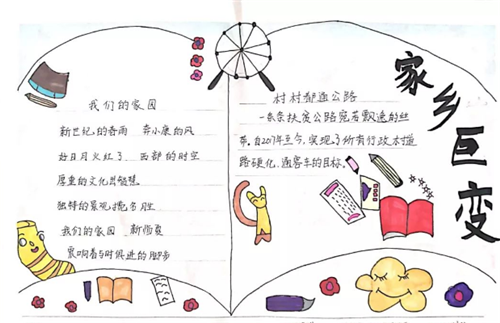 家乡巨变
我们的家园
新世纪的春雨 奔小康的风
好日月火红了 西部的时空
厚重的文化
独特的景观 揽名胜
我们的家园 新
震响着与时俱进的脚步
村村都通公路
一条条扶贫公路宛若飘逸的丝
带。自2017年至今,实现了所有行政村道
路硬化,通客车的目标。